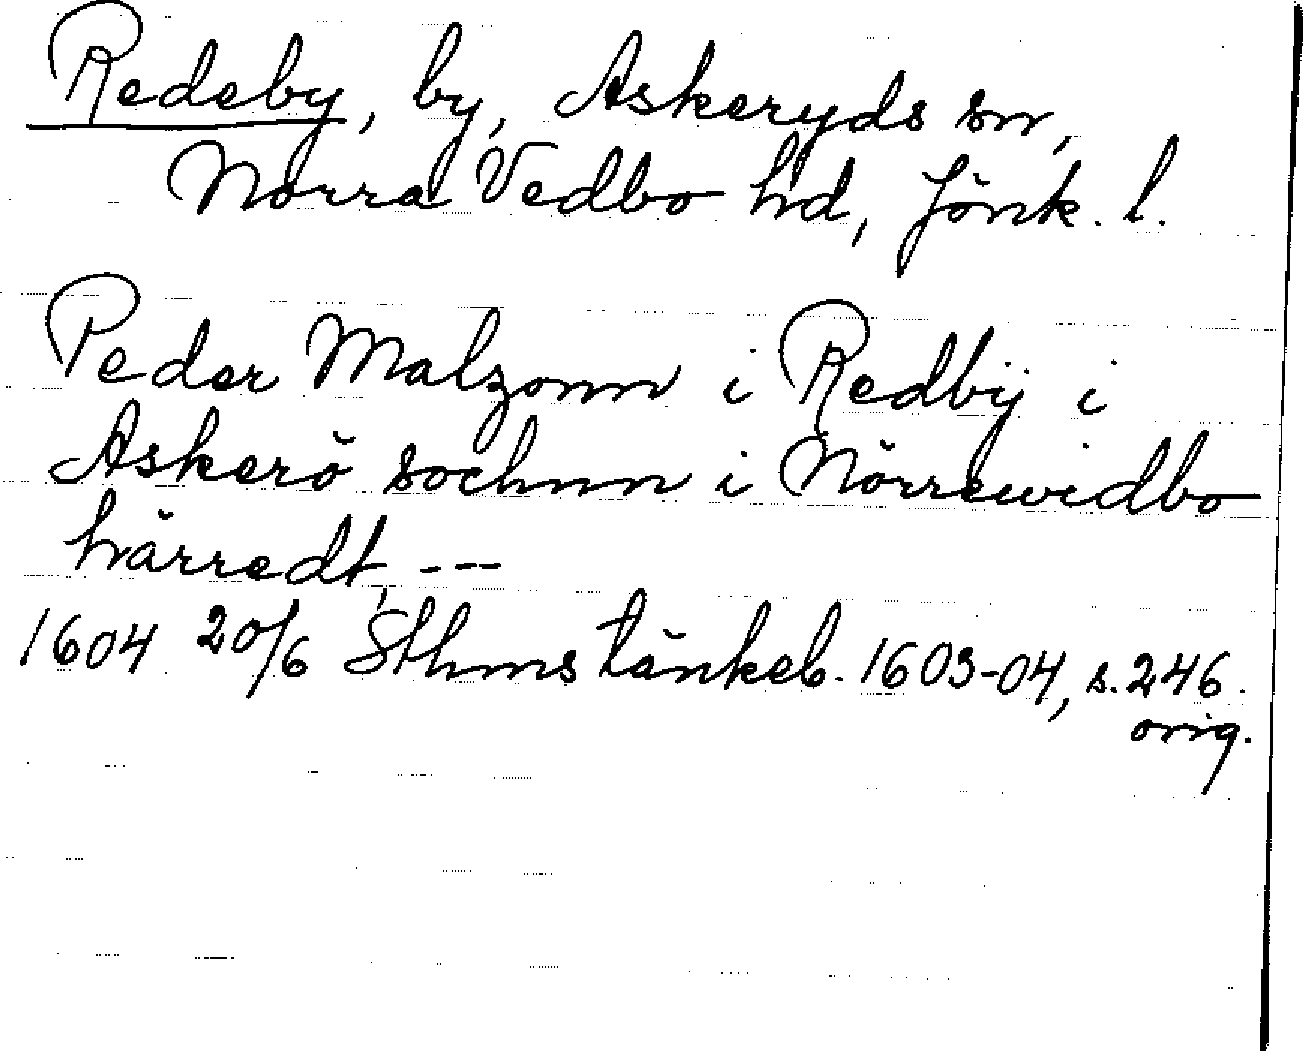 Redeby, by, Askeryds sn,
Norra Vedbo hd, Jönk. l.
Peder Malzonn i Redbÿ i
Askerö sochnn i Nörrewidbo
härredt, ---
1604 20/6 Sthms tänkeb. 1603-04, s. 246.
orig.